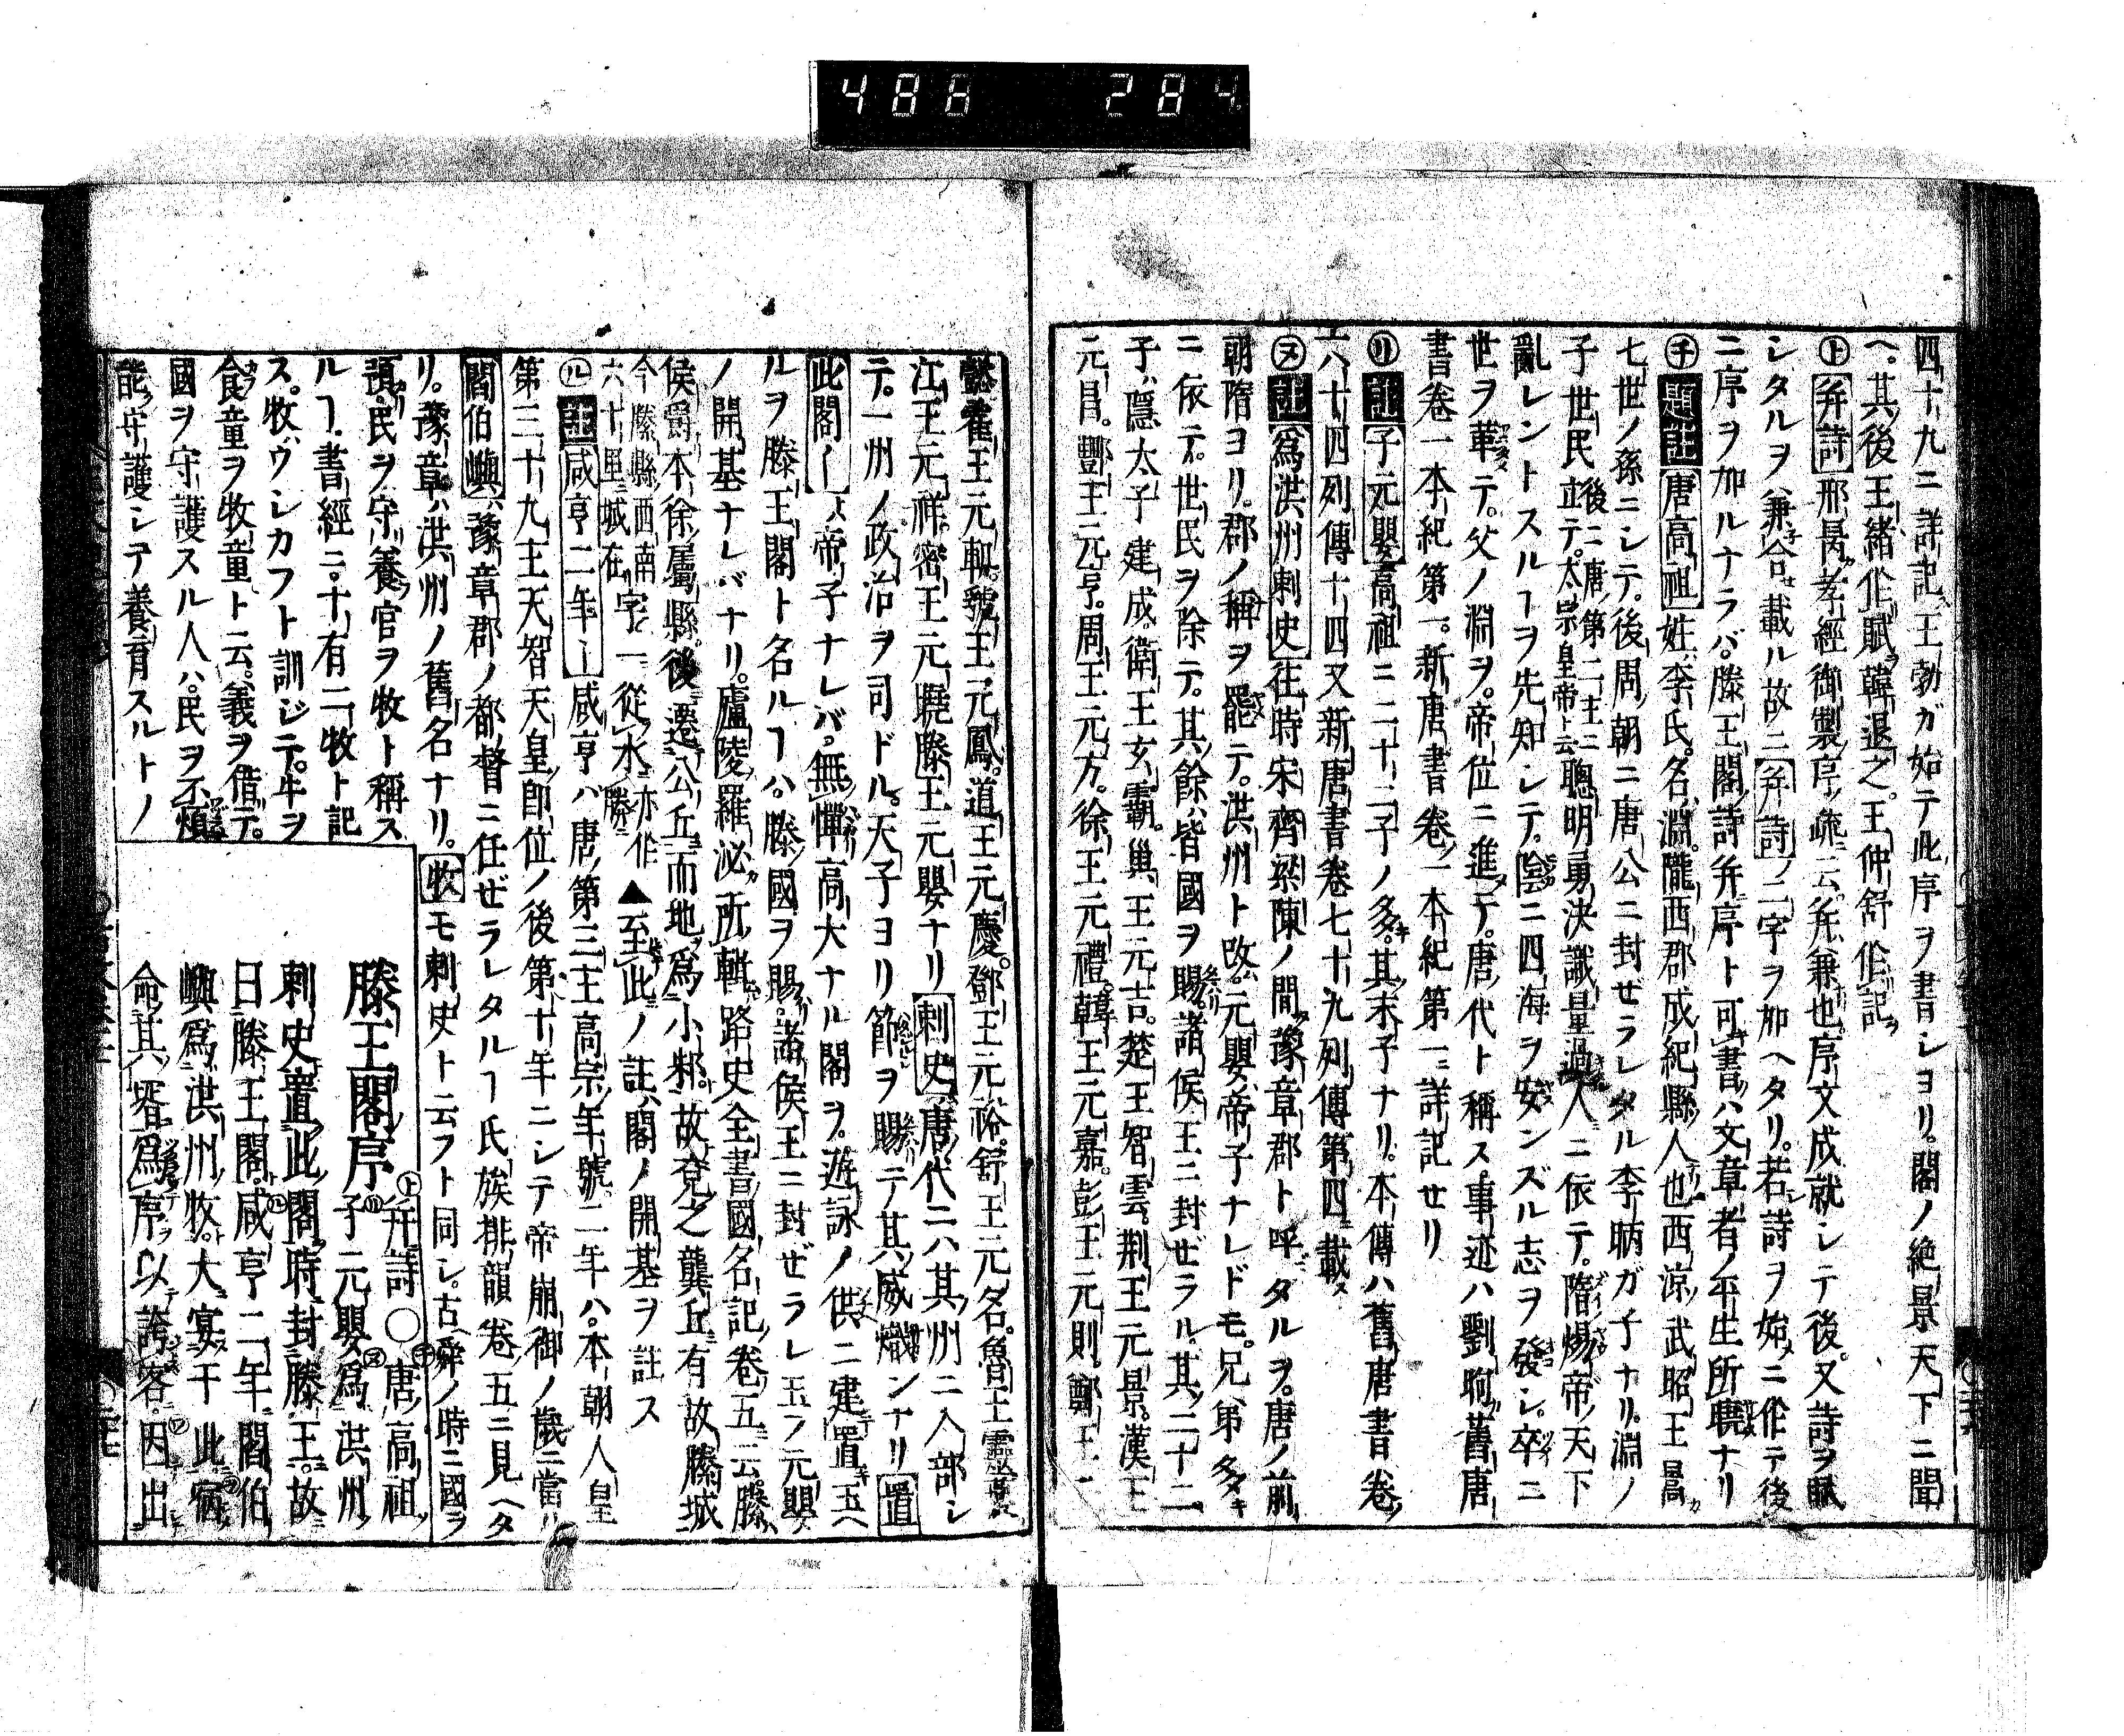 486 284
四十九ニ詳記ス王勃ガ始テ此序ヲ書シヨリ。閣ノ絶景天下ニ聞
ヘ。其後王緒作賦ヲ韓退之。王仲舒作記ヲ
㋣幷詩邢昺孝經御製序ノ疏ニ云幷ハ兼也。序文成就シテ後。又詩ヲ賦
シタルヲ兼合セ載ル故ニ幷詩ノ二字ヲ加ヘタリ。若シ詩ヲ始メニ作テ後
ニ序ヲ加ルナラバ。滕王閣ノ詩幷序ト可書ハ文章者ノ平生所曉ナリ
㋠題註唐高祖姓ハ李氏。名ハ淵。隴西郡成紀縣ノ人也西涼ノ武昭王暠ガ
七世ノ孫ニシテ。後周ノ朝ニ唐公ニ封ゼラレタル李昞ガ子ナリ。淵ノ
子世民後ニ唐ノ第二主ニ立テ。太宗皇帝ト云聰明勇決識量過人ニ依テ。隋煬帝ノ天下
亂レントスルヿヲ先知シテ。陰ニ四海ヲ安ンズル志ヲ發シ。卒ニ
世ヲ革テ。父ノ淵ヲ。帝位ニ進テ。唐代ト稱ス。事迹ハ劉昫ガ舊唐
書卷一本紀第一。新唐書卷一本紀第一ニ詳記セリ
㋷註子元嬰高祖ニ二十二子ノ多キ。其末子ナリ。本傳ハ舊唐書卷
六十四列傳十四又新唐書卷七十九列傳第四ニ載ス
㋦註爲洪州刺史往時宋齊梁陳ノ間ダ。豫章郡ト呼タルヲ。唐ノ前
朝隋ヨリ。郡ノ稱ヲ罷テ。洪州ト改ム。元嬰ハ帝子ナレドモ。兄弟多キ
ニ依テ。世民ヲ除テ。其餘ハ皆國ヲ賜ハリ。諸侯王ニ封ゼラル。其二十二
子ハ隱太子建成。衛王玄霸。巢王元吉。楚王智雲。荆王元景。漢王
元昌。酆王元亨。周王元方。徐王元禮。韓王元嘉。彭王元則。鄭王
懿。霍王元軌。虢王元鳳。道王元慶。鄧王元裕。舒王元名。魯王靈夔
江王元祥。密王元曉。滕王元嬰ナリ刺史唐代ニハ其州ニ入部シ
テ。一州ノ政治ヲ司ドル。天子ヨリ節ヲ賜テ其威熾ンナリ置
此閣ーハ帝子ナレバ。無憚高大ナル閣ヲ。遊詠ノ供ニ建置玉ヘ
ルヲ滕王閣ト名ルヿハ。滕國ヲ賜。諸侯王ニ封ゼラレ玉フ元嬰
ノ開基ナレバナリ。廬陵ノ羅泌所輯路史全書國名記卷五ニ云。滕ハ
侯爵本徐ノ屬縣。後遷公丘ニ而地爲小邾。故ニ兗之龔丘ニ有故滕城
今滕縣西南六十里ニ城在字一從水ニ亦作勝ニ▲至此ノ註ハ閣ノ開基ヲ註ス
㋸註咸亨二年ー咸亨ハ唐ノ第三主高宗ノ年號。二年ハ。本朝人皇
第三十九主天智天皇ノ卽位ノ後第十年ニシテ帝崩御ノ歲ニ當リ
閻伯嶼ハ豫章郡ノ都督ニ任ゼラレタルヿ氏族排韻卷五ニ見ヘタ
リ。豫章ハ洪州ノ舊名ナリ。牧モ刺史ト云フト同シ。古ヘ舜ノ時ニ國ヲ
預リ民ヲ守養官ヲ牧ト稱ス
ルヿ。書經ニ。十有二牧ト記
ス。牧ハウシカフト訓ジテ。牛ヲ
食童ヲ牧童ト云。義ヲ借テ。
國ヲ守護スル人ハ。民ヲ不煩
能守護シテ養育スルトノ
滕王閣序㋣幷詩○㋠唐ノ高祖
㋷子元嬰㋦爲洪州
刺史置此閣。時ニ封滕王。故ニ
曰滕王閣。㋸咸亨二年。閻伯
嶼爲洪州ノ牧。大ニ宴于此ニ宿
命其ノ壻爲序以誇客。因出